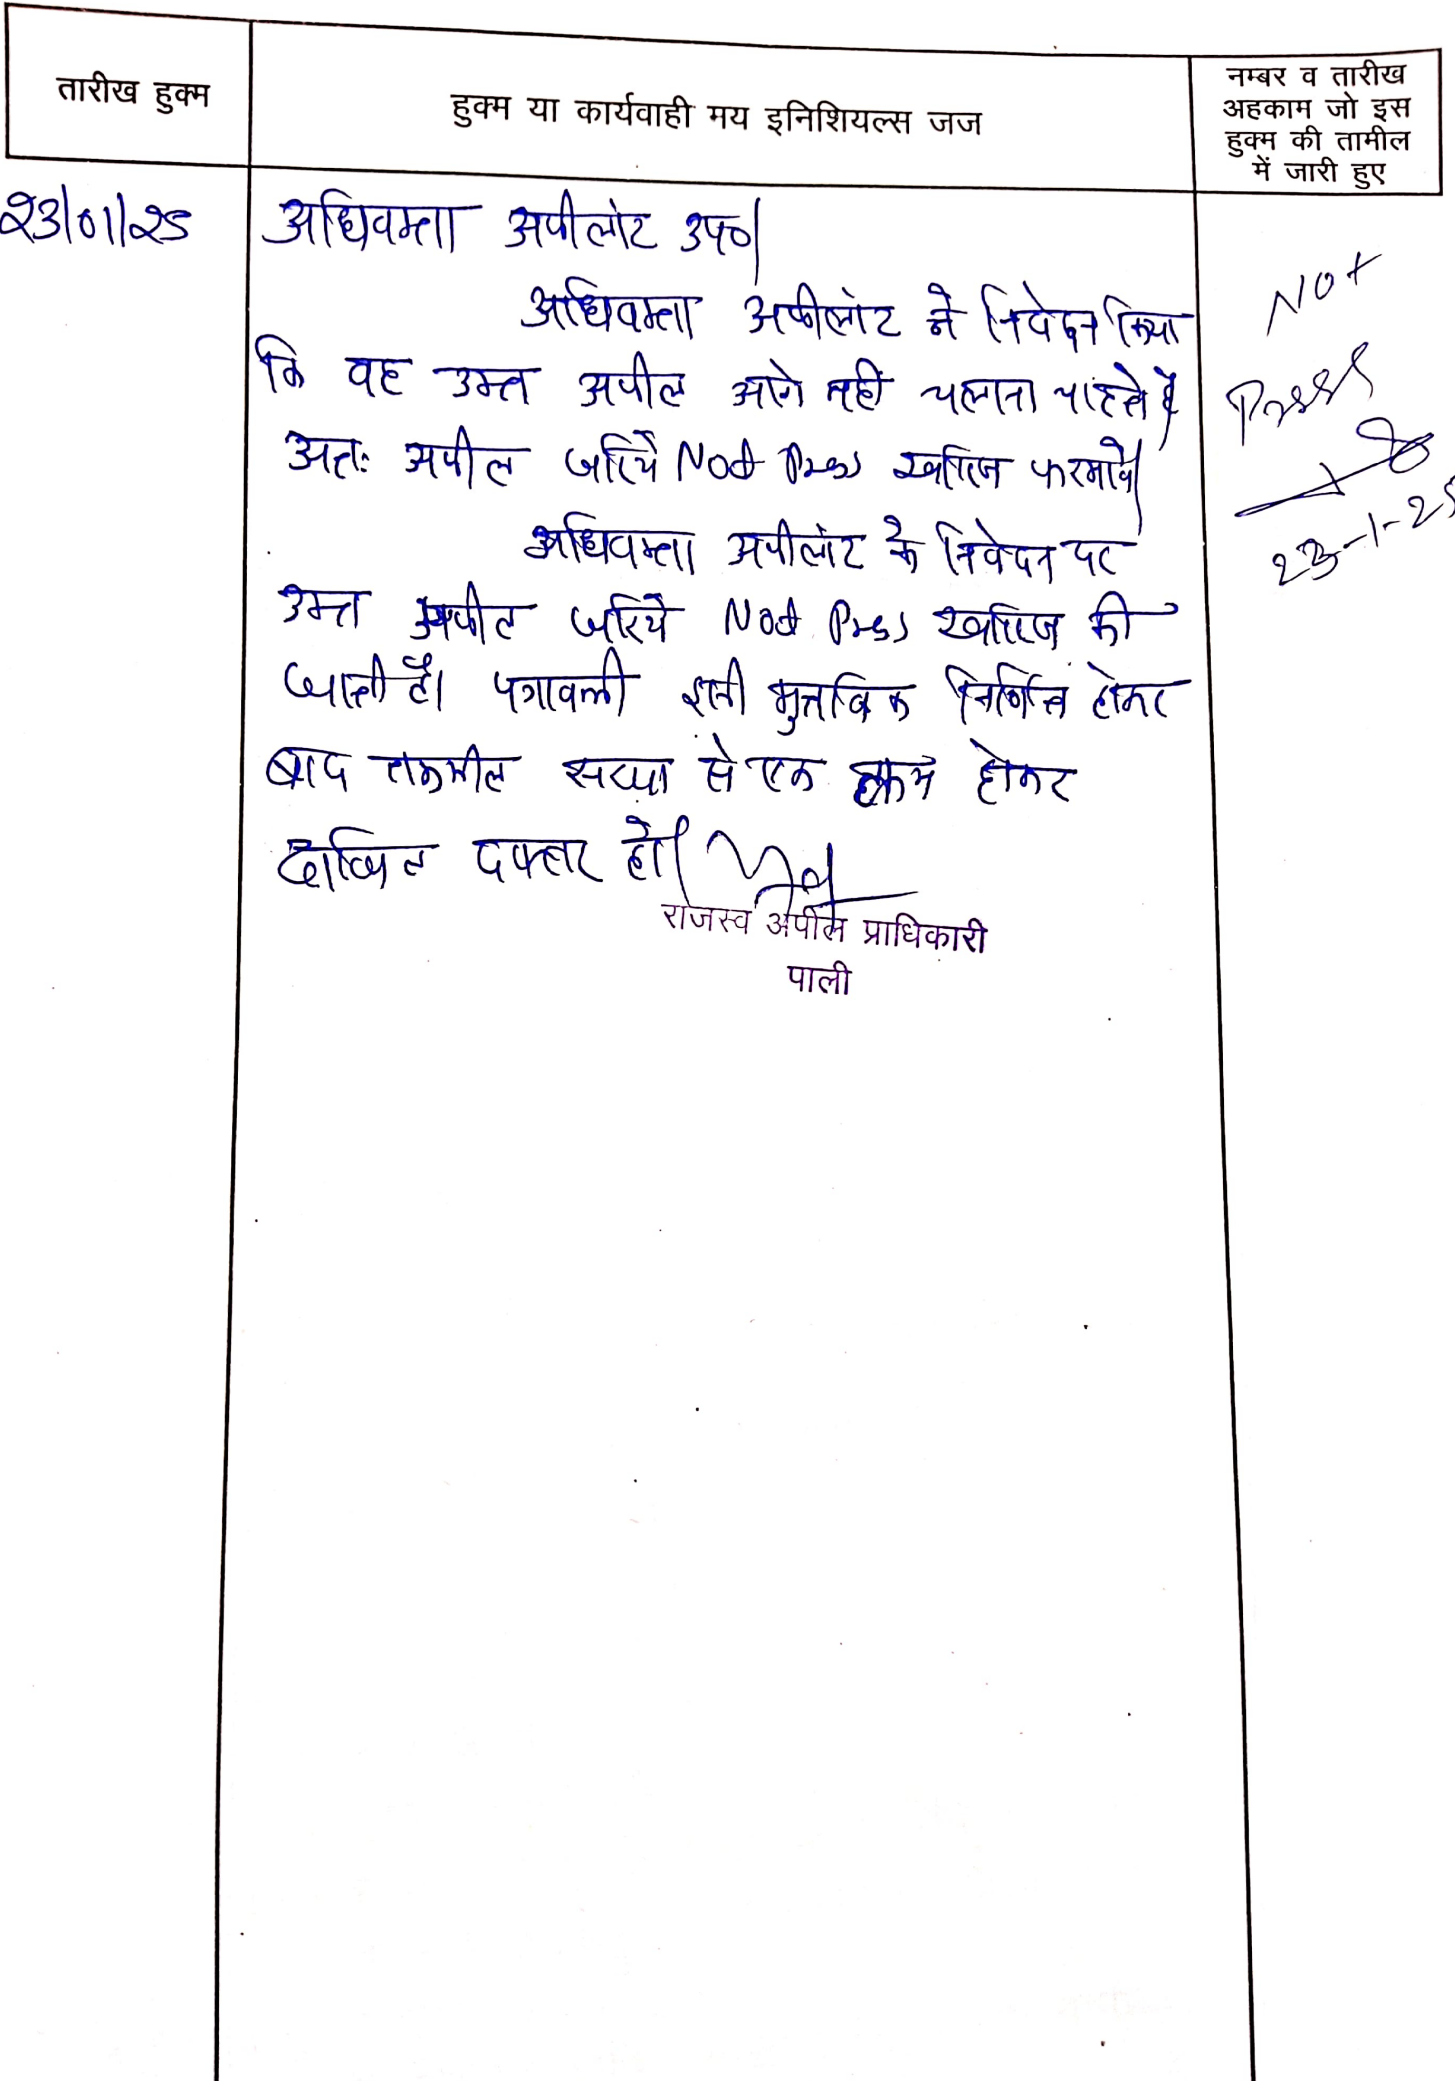 तारीख हुक्म
हुक्म या कार्यवाही मय इनिशियल्स जज
नम्बर व तारीख
अहकाम जो इस
हुक्म की तामील
में जारी हुए
23/01/25
अधिवक्ता अपीलांट उप०।
अधिवक्ता अपीलांट ने निवेदन किया
कि वह उक्त अपील आगे नहीं चलाना चाहते है
अतः अपील जरिये Not Press खारिज फरमावे।
अधिवक्ता अपीलांट के निवेदन पर
उक्त अपील जरिये Not Press खारिज की
जाती है। पत्रावली इसी मुताबिक निर्णित होकर
बाद तकमील सख्या से एक कम होकर
दाखिल दफ्तर हो।
राजस्व अपील प्राधिकारी
पाली
Not
Press
23-1-25